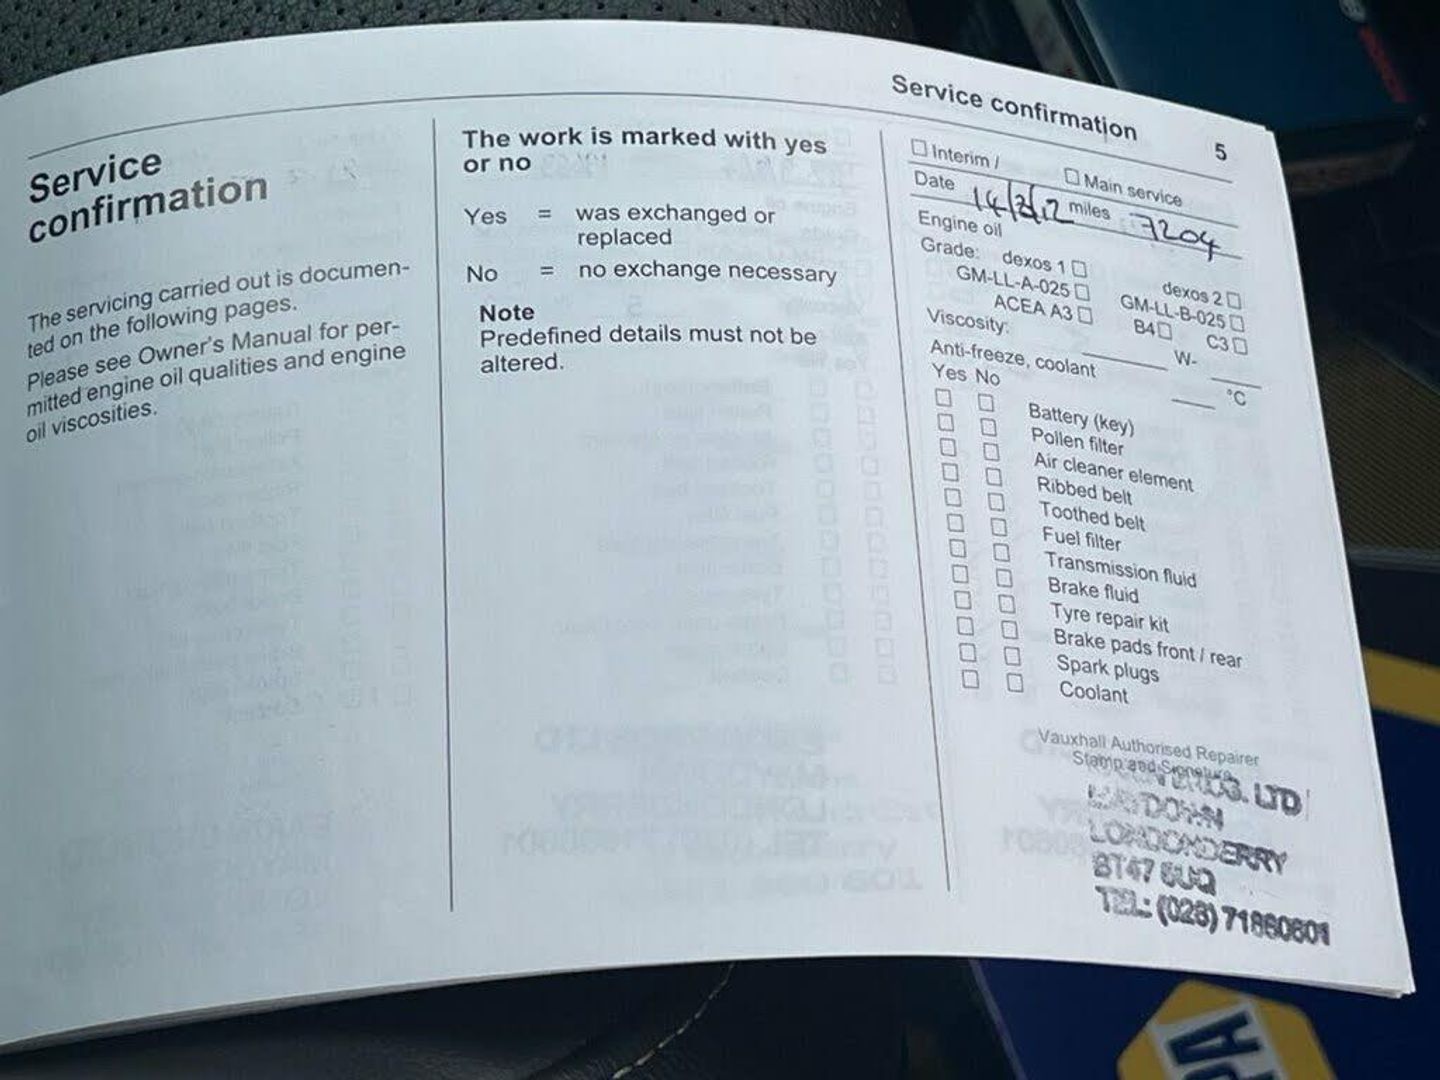 Service confirmation
5
Service
confirmation
The servicing carried out is documen-
ted on the following pages.
Please see Owner's Manual for per-
mitted engine oil qualities and engine
oil viscosities.
The work is marked with yes
or no
Yes = was exchanged or
replaced
No = no exchange necessary
Note
Predefined details must not be
altered.
☐ Interim / ☐ Main service
Date 14/2/12 miles 7204
Engine oil
Grade: dexos 1 ☐ dexos 2 ☐
GM-LL-A-025 ☐ GM-LL-B-025 ☐
ACEA A3 ☐ B4 ☐ C3 ☐
Viscosity: ____ W- ____
Anti-freeze, coolant ____ °C
Yes No
☐ ☐ Battery (key)
☐ ☐ Pollen filter
☐ ☐ Air cleaner element
☐ ☐ Ribbed belt
☐ ☐ Toothed belt
☐ ☐ Fuel filter
☐ ☐ Transmission fluid
☐ ☐ Brake fluid
☐ ☐ Tyre repair kit
☐ ☐ Brake pads front / rear
☐ ☐ Spark plugs
☐ ☐ Coolant
Vauxhall Authorised Repairer
Stamp and Signature
BROS. LTD
MAYDOWN
LONDONDERRY
BT47 6UQ
TEL: (028) 71860601